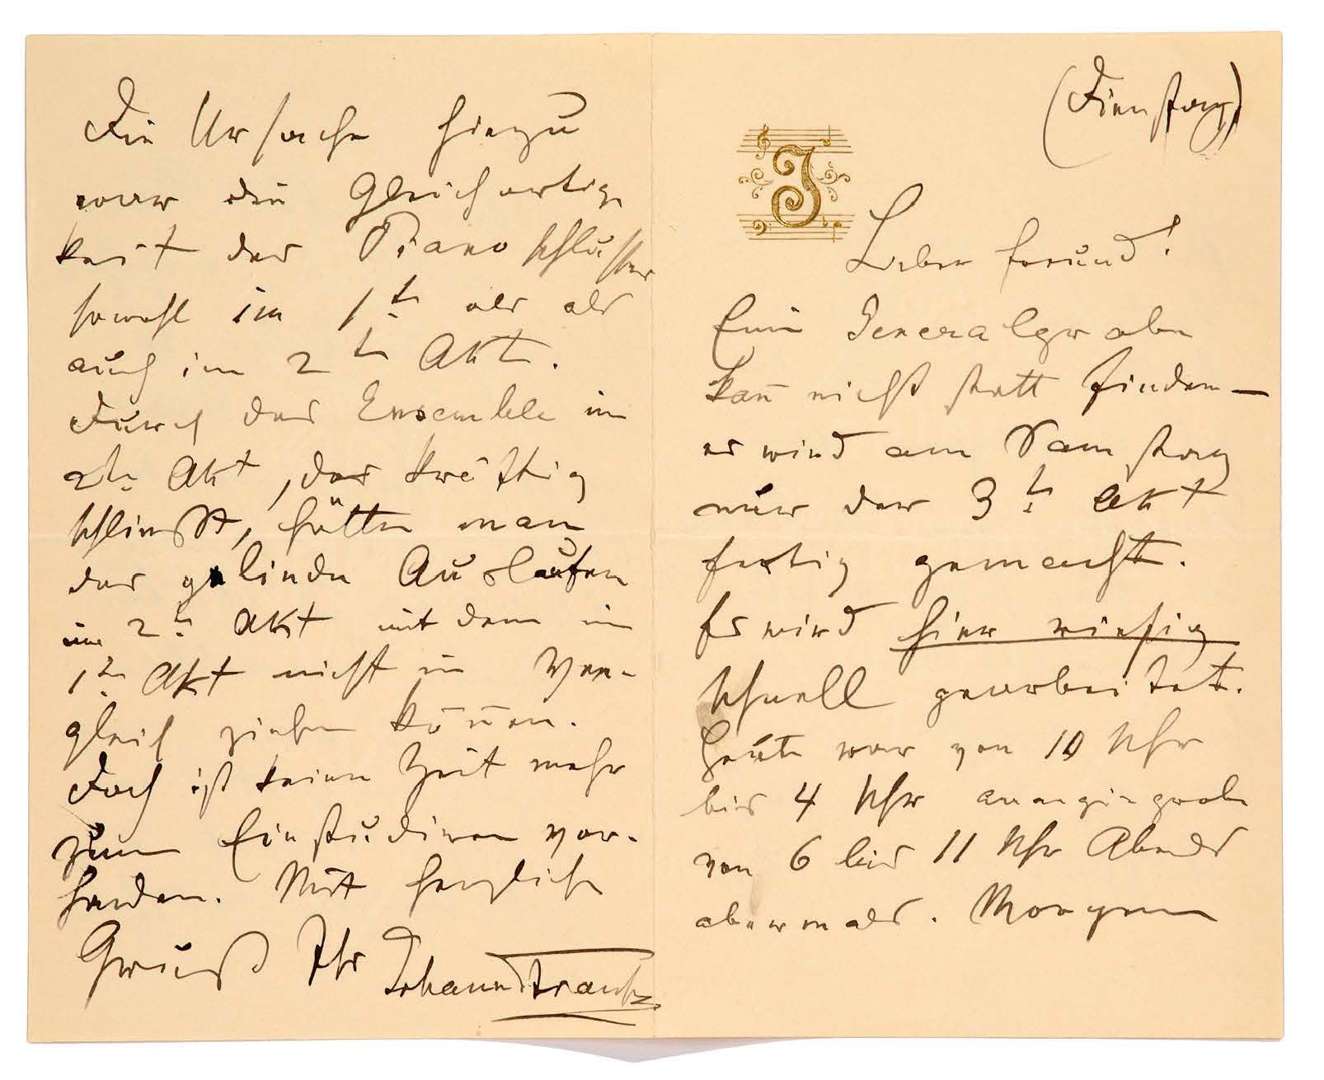 (Dienstag)
J
Lieber Freund!
Eine Generalprobe
kañ nicht statt finden –
es wird am Samstag
nur der 3te Akt
fertig gemacht.
Es wird hier riesig
schnell gearbeitet.
Heute war von 10 Uhr
bis 4 Uhr
von 6 bis 11 Uhr Abends
abermals. Morgen
Die Ursache hiezu
war die Gleichartig
keit der Piano schlüsse
sowohl im 1ten als als
auch im 2ten Akt.
Durch das Ensemble im
2ten Akt, das kräftig
schließt, hätte man
das gelinde Auslaufen
im 2ten Akt mit dem im
1ten Akt nicht in Ver-
gleich ziehen köñen.
Doch ist keine Zeit mehr
zum Einstudiren vor-
handen. Mit herzlich
Gruß Ihr Johann Strauss